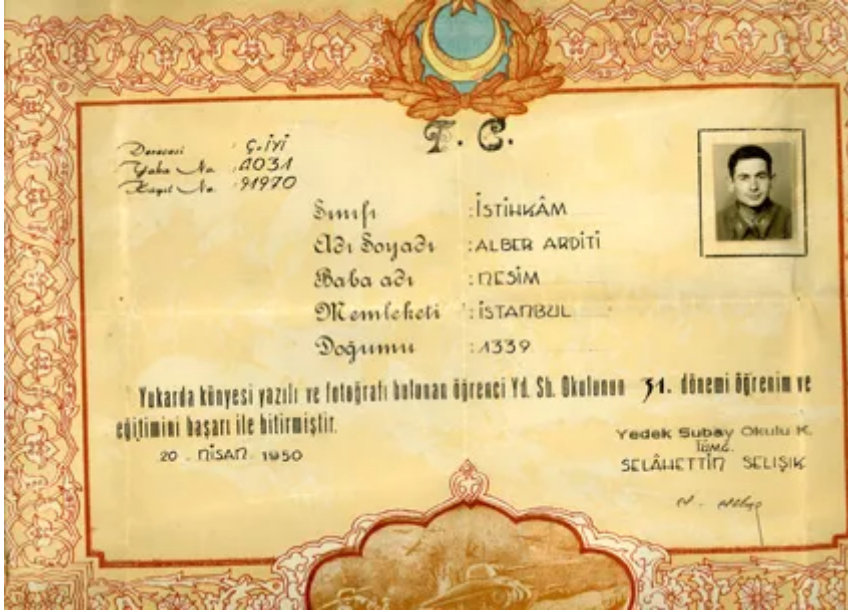 T. C.
Derecesi : Ç. İYİ
Yaka No : 4031
Kayıt No : 91970
Sınıfı : İSTİHKÂM
Adı Soyadı : ALBER ARDİTİ
Baba adı : NESİM
Memleketi : İSTANBUL
Doğumu : 1339
Yukarda künyesi yazılı ve fotoğrafı bulunan öğrenci Yd. Sb. Okulunun 31. dönemi öğrenim ve
eğitimini başarı ile bitirmiştir.
20 . NİSAN . 1950
Yedek Subay Okulu K.
TÜMG.
SELÂHETTİN SELIŞIK